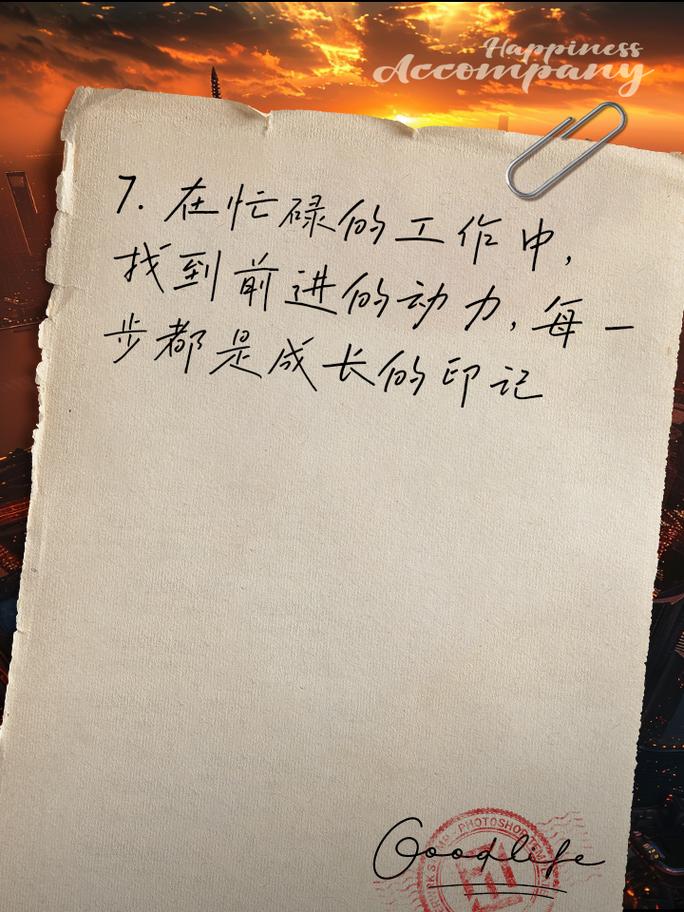 Happiness
Accompany
7. 在忙碌的工作中,
找到前进的动力,每一
步都是成长的印记
Goodlife
PHOTOSHOP